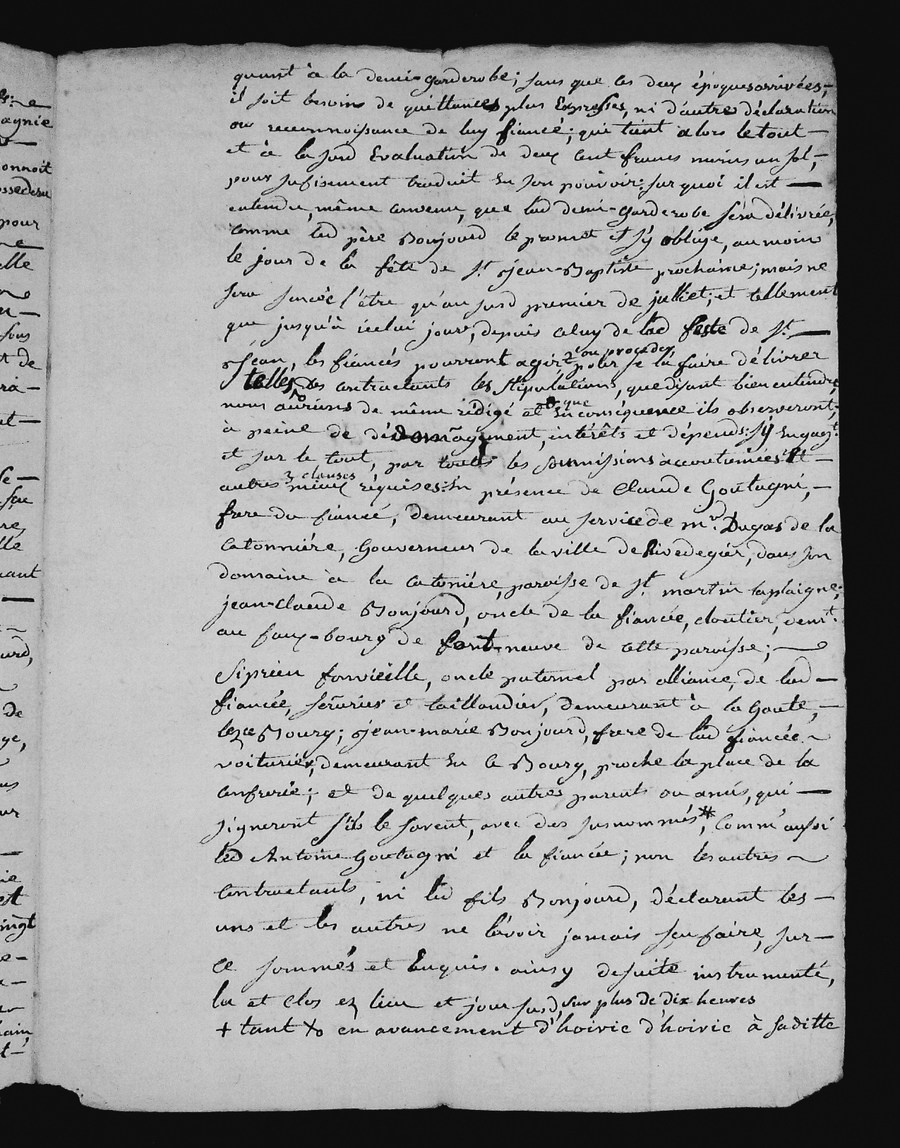 quant à la demi-garderobe; sans que les deux époques arrivées,
il soit besoin de quittances plus Expresses, ni d'autre déclaration
ou reconnoissance de luy fiancé; qui tient alors le tout —
et à la susd Evaluation de deux cent francs moins un sol,
pour suffisement traduit en son pouvoir. sur quoi il est —
entendu, même convenu, que lad demi-Garderobe sera délivrée,
comme led père Bonjourd le promet et s'y oblige, au moin
le jour de la fête de st jean-Baptiste prochaine; mais ne
sera sensée l'être qu'au susd premier de julliet; et tellement
que jusqu'à icelui jour, depuis celuy de lad feste de st —
Jean, les fiancés pourront agir ou proceder pour se la faire délivrer
telles des contractants les stipulations, que disant bien entendre,
nous aurions de même rédigé et que en conséquence ils observeront,
à peine de dédomagement, intérêts et dépends: s'y engagt
et sur le tout, par toutes les soumissions accoutumées Et —
autres clauses mieux réquises: En présence de Claude Goutagni, —
frere du fiancé, demeurant au service de mr. Dugas de la
Catonnière, Gouverneur de la ville de Rivedegier, dans son
domaine à la Catonière, paroisse de st martin laplaigne;
jean-Claude Bonjourd, oncle de la fiancée, cloutier, demt
au faux-bourg de font-neuve de cette paroisse;
Siprien fonvieille, oncle paternel par alliance, de lad —
fiancée, sérurier et taillandier, demeurant à la Goute, —
lez ce Bourg; jean-marie Bonjourd, frere de lad fiancée
voiturier, demeurant en ce Bourg, proche la place de la
confrerie; et de quelques autres parents ou amis, qui —
signeront s'ils le savent, avec des susnommés*, Comm'aussi
led Antoine Goutagni et la fiancée; non les autres
Contractants, ni led fils Bonjourd, déclarant les —
uns et les autres ne l'avoir jamais seu faire, sur —
ce sommés et Enquis. ainsy desuite instrumenté,
lu et clos ez lieu et jour susd, sur plus de dix heures
+ tant en avancement d'hoirie d'hoirie à saditte